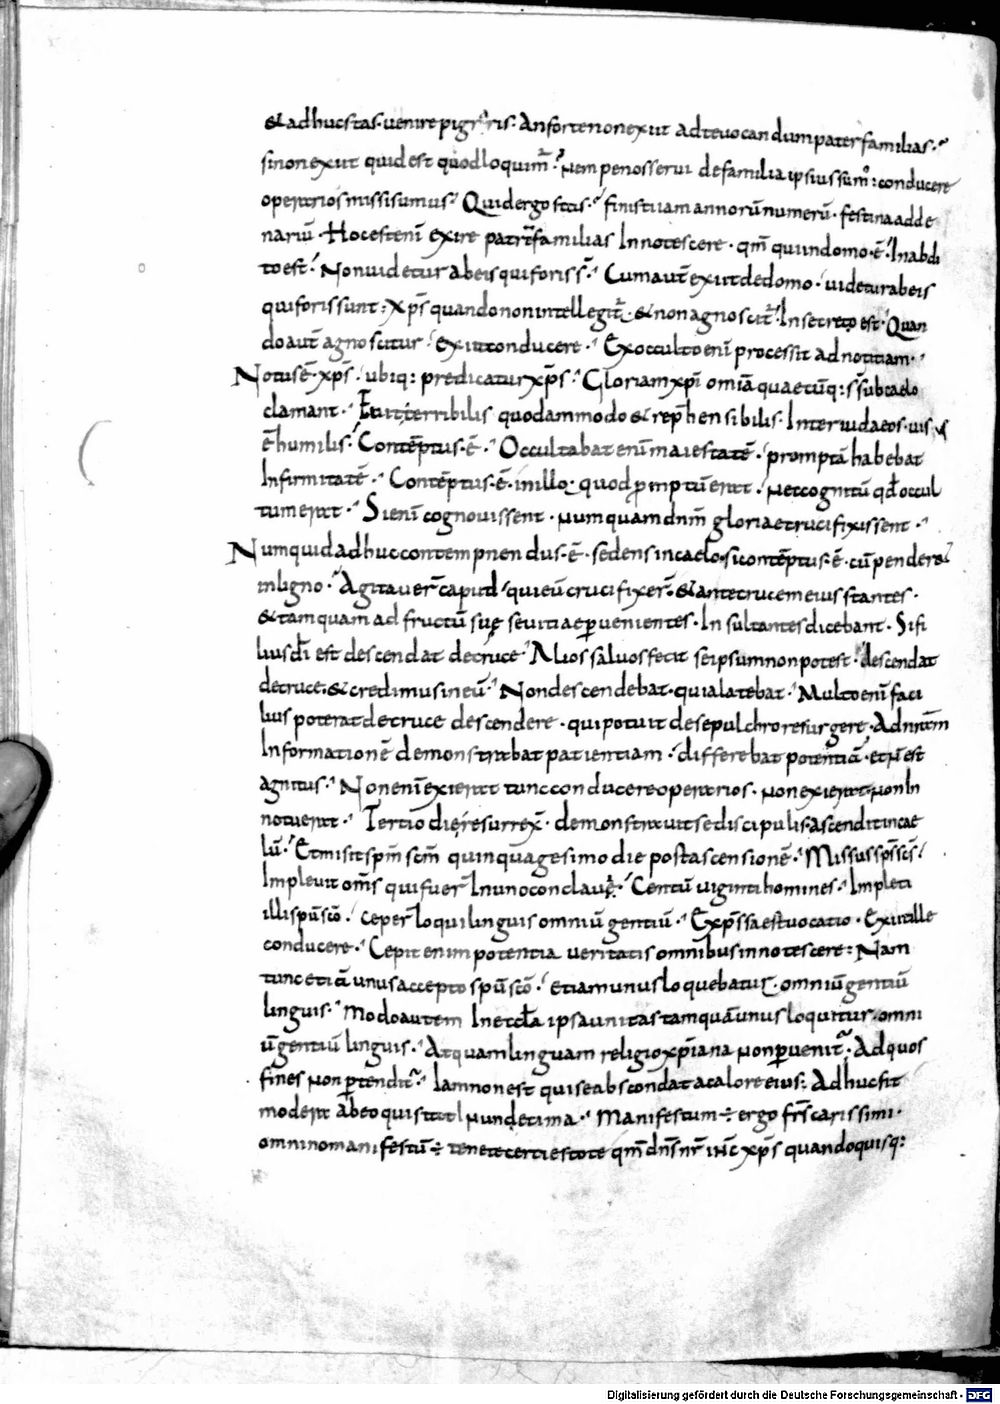 & adhuc stas · uenire pigraris · An forte non exiit ad te uocandum paterfamilias ·
si non exiit quid est quod loquimr̄ · Nempe nos serui de familia ipsius sumꝰ : conducere
operarios missi sumus · Quid ergo stas · finisti iam annorū numerū · festina ad de
nariū · Hoc est enī exire patrēfamilias Innotescere · qm̄ qui in domo · ē · In abdi
to est · Non uidetur ab eis qui foris ss̄ · Cum autē exiit de domo · uidetur ab eis
qui foris sunt : xp̄s quando non intellegit̄ · & non agnoscit̄ · In secreto est · Quan
do aut̄ agnoscitur · Exiit conducere · Ex occulto enī processit ad notitiam ·
Notus ē · xp̄s · ubiq: predicatur xp̄s · Gloriam xp̄i omīa quaecūq: ss̄ sub caelo
clamant · Fuit terribilis quodammodo & rep̄hensibilis · Inter iudaeos · uisus
ē humilis · Contēptus · ē · Occultabat enī maiestatē · promptā habebat
Infirmitatē · Contēptus · ē · in illo · quod p̄mptū erat · nec cognitū qđ occul
tum erat · Si enī cognouissent · numquam dnm̄ gloriae crucifixissent ·
Numquid adhuc contempnendus · ē · sedens in caelo · si contēptus · ē · cū penderet
in ligno · Agitauer̄ caput · qui eū crucifixer̄ · & ante crucem eius stantes ·
& tamquam ad fructū suę seuitiae p̄uenientes · Insultantes dicebant · Si fi
lius dī est descendat de cruce · Alios saluos fecit se ipsum non potest · descendat
de cruce · & credimus in eū · Non descendebat · quia latebat · Multo enī faci
lius poterat de cruce descendere · qui potuit de sepulchro resurgere · Ad nr̄am
Informationē demonstrabat patientiam · differebat potentiā · et n̄ est
agnitus · Non enī exierat tunc conducere operarios · non exierat · non In
notuerat · Tertio die resurrex̄ · demonstrauit se discipulis · ascendit in cae
lū · Et misit sp̄m scm̄ quinquagesimo die post ascensionē · Missus sp̄s scs̄ ·
Impleuit om̄s qui fuer̄ In uno conclaue · Centū uiginti homines · Impleti
illi spū scō · ceper̄ loqui linguis omniū gentiū · Exp̄ssa est uocatio · Exiit ille
conducere · Cepit enim potentia ueritatis omnibus innotescere : Nam
tunc etiā unus accepto spū scō · etiam unus loquebatur · omniū gentiū
linguis · Modo autem In eccła ipsa unitas tamquā unus loquitur · omni
ū gentiū linguis · At quam linguam religio xp̄iana non p̄uenit · Ad quos
fines non p̄tendit · Iam non est qui se abscondat a calore eius : Adhuc fit
modera ab eo qui stat undecima · Manifestum ÷ ergo fr̄s carissimi ·
omnino manifestū ÷ tenete certi estote qm̄ dn̄s nr̄ ihc̄ xp̄s quando quisq:
Digitalisierung gefördert durch die Deutsche Forschungsgemeinschaft · DFG